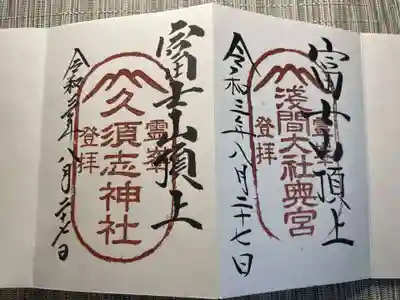 富士山頂上
霊峰
浅間大社奥宮
登拝
令和三年八月二十七日
富士山頂上
霊峰
久須志神社
登拝
令和三年八月二十七日